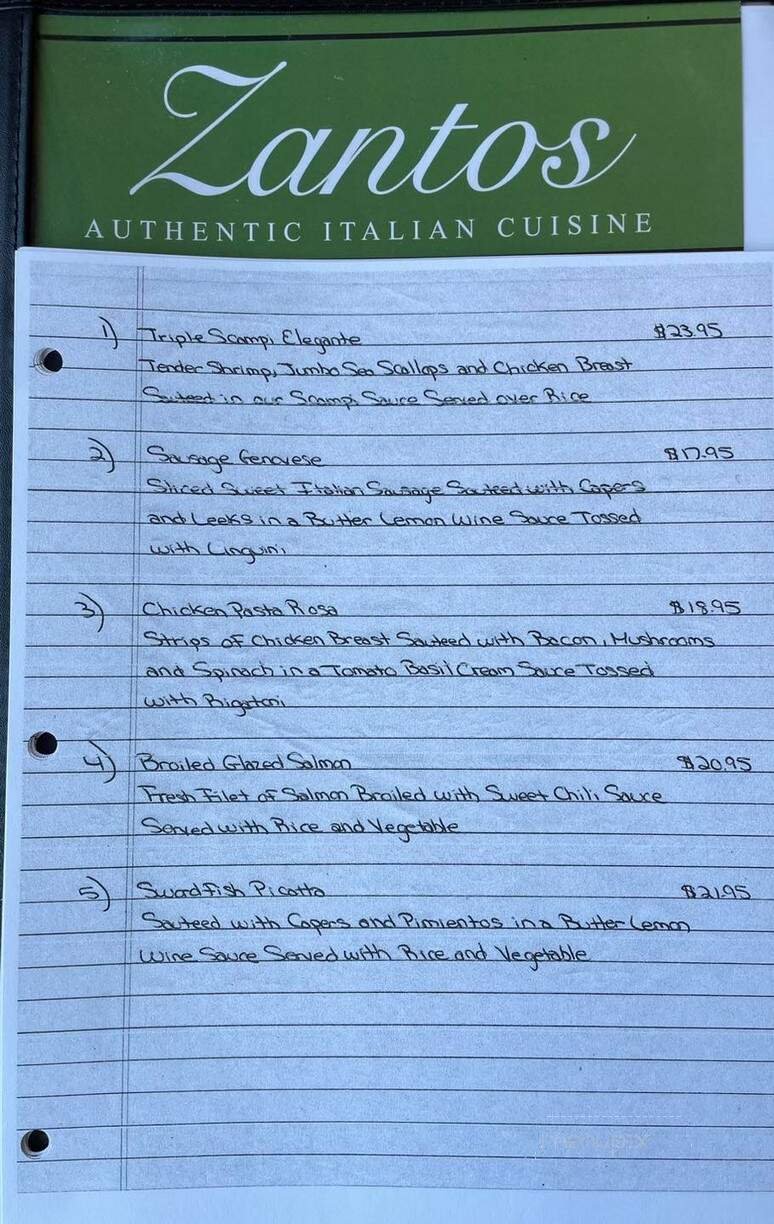 Zantos
AUTHENTIC ITALIAN CUISINE
1) Triple Scampi Elegante $23.95
Tender Shrimp, Jumbo Sea Scallops and Chicken Breast
Sauteed in our Scampi Sauce Served over Rice
2) Sausage Genovese $17.95
Sliced Sweet Italian Sausage Sauteed with Capers
and Leeks in a Butter Lemon Wine Sauce Tossed
with Linguini
3) Chicken Pasta Rosa $18.95
Strips of Chicken Breast Sauteed with Bacon, Mushrooms
and Spinach in a Tomato Basil Cream Sauce Tossed
with Rigatoni
4) Broiled Glazed Salmon $20.95
Fresh Filet of Salmon Broiled with Sweet Chili Sauce
Served with Rice and Vegetable
5) Swordfish Picatta $21.95
Sauteed with Capers and Pimientos in a Butter Lemon
Wine Sauce Served with Rice and Vegetable
menupix